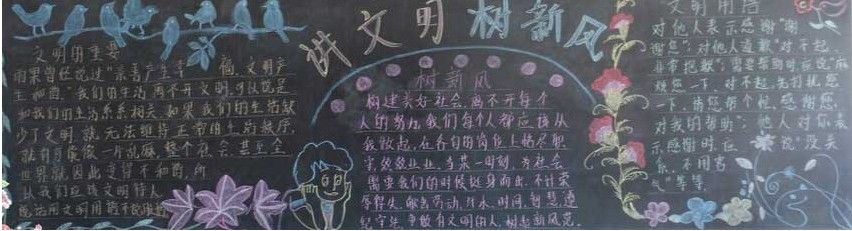 讲文明 树新风
文明的重要
雨果曾经说过"亲善产生幸福,文明产
生和谐."我们的生活离不开文明,可以说是
和我们的生活息息相关.如果我们的生活缺
少了文明,就无法维持正常的生活秩序,
就有可能像一片乱麻,整个社会,甚至全
世界就因此变得不和谐,所
以我们应该文明待人
树新风
构建美好社会,离不开每个
人的努力,我们每个人都应该从
我做起,在各自的岗位上恪尽职
守,兢兢业业,当某一时刻,为社会
需要我们的时候挺身而出.不计荣
辱得失,献出劳动,汗水,时间,智慧,遵
纪守法,争做有文明的人,树起新风范.
文明用语
对他人表示感谢"谢
谢您";对他人道歉"对不起,
非常抱歉";需要帮助时应说"麻
烦您一下,对不起,先打扰您
一下,请您帮个忙,感谢您
对我的帮助";他人对你表
示感谢时,应说"没关
系,不用客
气"等等.